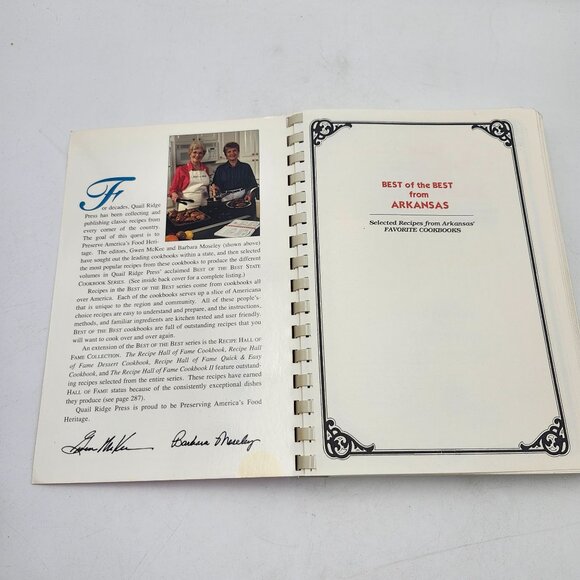 For decades, Quail Ridge
Press has been collecting and
publishing classic recipes from
every corner of the country.
The goal of this quest is to
Preserve America's Food Heri-
tage. The editors, Gwen McKee and Barbara Moseley (shown above)
have sought out the leading cookbooks within a state, and then selected
the most popular recipes from these cookbooks to produce the different
volumes in Quail Ridge Press' acclaimed BEST OF THE BEST STATE
COOKBOOK SERIES. (See inside back cover for a complete listing.)
Recipes in the BEST OF THE BEST series come from cookbooks all
over America. Each of the cookbooks serves up a slice of Americana
that is unique to the region and community. All of these people's
choice recipes are easy to understand and prepare, and the instructions,
methods, and familiar ingredients are kitchen tested and user friendly.
BEST OF THE BEST cookbooks are full of outstanding recipes that you
will want to cook over and over again.
An extension of the BEST OF THE BEST series is the RECIPE HALL OF
FAME COLLECTION. The Recipe Hall of Fame Cookbook, Recipe Hall
of Fame Dessert Cookbook, Recipe Hall of Fame Quick & Easy
Cookbook, and The Recipe Hall of Fame Cookbook II feature outstand-
ing recipes selected from the entire series. These recipes have earned
HALL OF FAME status because of the consistently exceptional dishes
they produce (see page 287).
Quail Ridge Press is proud to be Preserving America's Food
Heritage.
Gwen McKee Barbara Moseley
BEST of the BEST
from
ARKANSAS
Selected Recipes from Arkansas'
FAVORITE COOKBOOKS